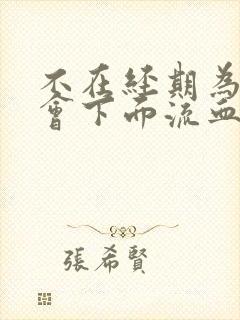 不在經期為
會下面流血
張希賢